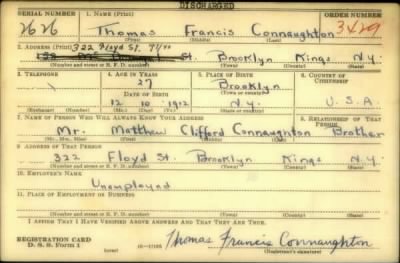 DISCHARGED
SERIAL NUMBER 1. NAME (Print) ORDER NUMBER
2626 Thomas Francis Connaughton 3429
(First) (Middle) (Last)
2. ADDRESS (Print) 322 Floyd St.
St. Brooklyn Kings N.Y.
(Number and street or R. F. D. number) (Town) (County) (State)
3. TELEPHONE 4. AGE IN YEARS 5. PLACE OF BIRTH 6. COUNTRY OF CITIZENSHIP
27 Brooklyn
DATE OF BIRTH (Town or county)
12 10 1912 N.Y. U.S.A.
(Exchange) (Number) (Mo.) (Day) (Yr.) (State or country)
7. NAME OF PERSON WHO WILL ALWAYS KNOW YOUR ADDRESS 8. RELATIONSHIP OF THAT PERSON
Mr. Matthew Clifford Connaughton Brother
(Mr., Mrs., Miss) (First) (Middle) (Last)
9. ADDRESS OF THAT PERSON
322 Floyd St. Brooklyn Kings N.Y.
(Number and street or R. F. D. number) (Town) (County) (State)
10. EMPLOYER'S NAME
Unemployed
11. PLACE OF EMPLOYMENT OR BUSINESS
(Number and street or R. F. D. number) (Town) (County) (State)
I AFFIRM THAT I HAVE VERIFIED ABOVE ANSWERS AND THAT THEY ARE TRUE.
REGISTRATION CARD
D. S. S. Form 1 Thomas Francis Connaughton
(over) (Registrant's signature)